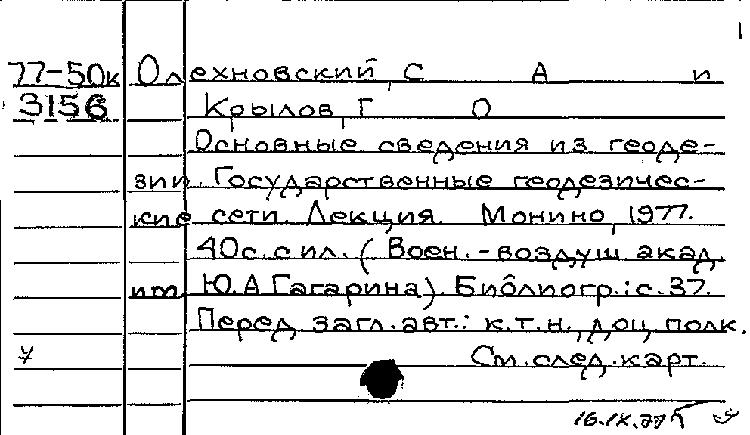 1
77-50к Олехновский, С А и
3156 Крылов, Г О
Основные сведения из геоде-
зии. Государственные геодезичес-
кие сети. Лекция. Монино, 1977.
40с. с ил. (Воен.-воздуш акад.
им. Ю.А Гагарина). Библиогр.: с. 37.
Перед загл. авт.: к.т.н., доц, полк.
См. след. карт.
16.IX.77